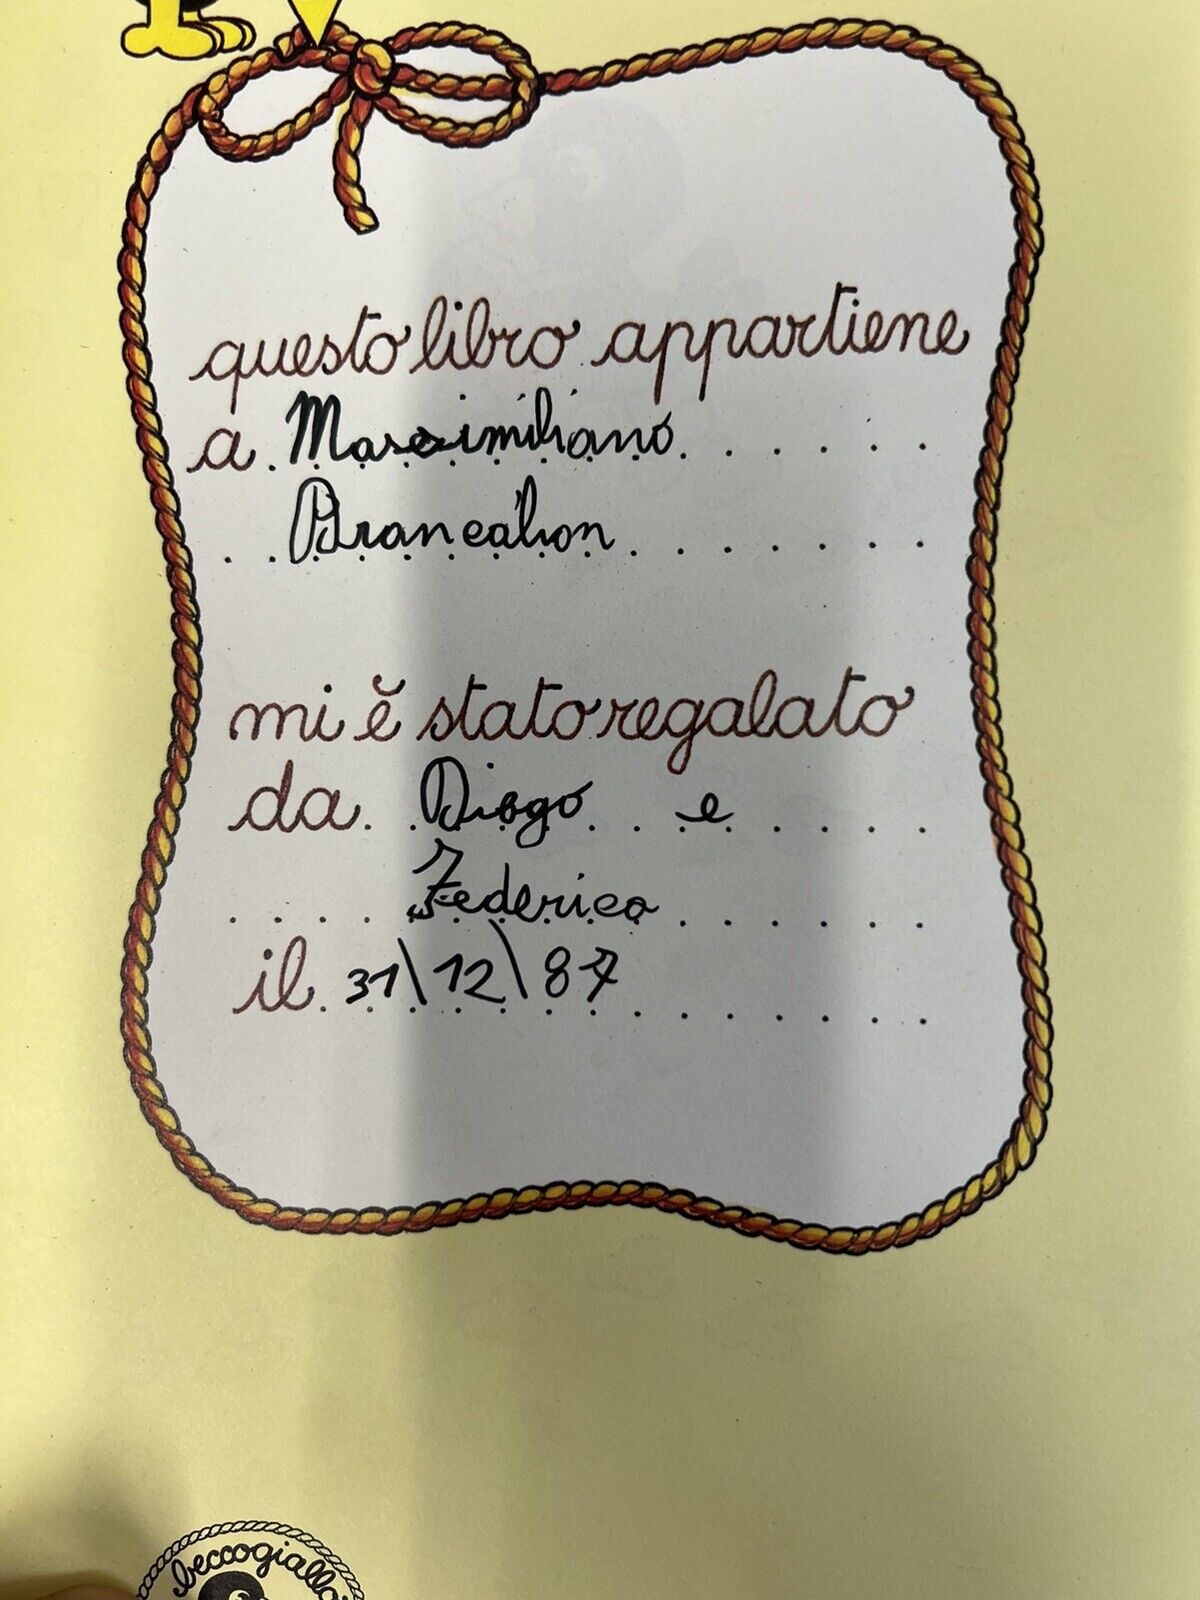 questo libro appartiene
a Massimiliano
Brancalion
mi è stato regalato
da Diego e
Federico
il 31\12\87
beccogiallo